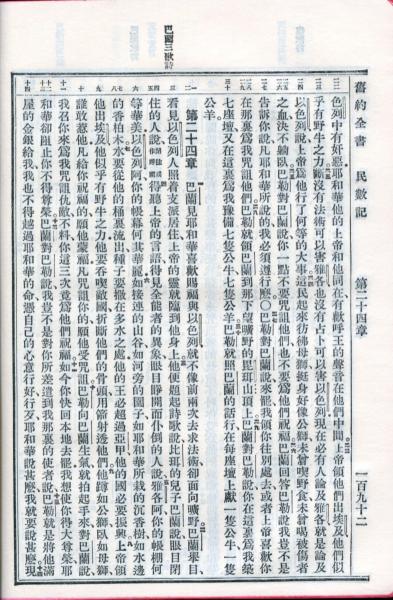 巴蘭三歌詩
舊約全書　民數記　第二十四章　一百九十二
色列中有奸惡耶和華他的上帝和他同在有歡呼王的聲音在他們中間上帝領他們出埃及他們似
乎有野牛之力斷沒有法術可以害雅各也沒有占卜可以害以色列現在必有人論及雅各就是論及
以色列說上帝爲他行了何等的大事這民起來彷彿母獅挺身好像公獅未曾喫野食未曾喝被傷者
之血決不躺臥巴勒對巴蘭說你一點不要咒詛他們也不要爲他們祝福巴蘭回答巴勒說我豈不是
告訴你說凡耶和華所說的我必須遵行麼○巴勒對巴蘭說來罷我領你往別處去或者上帝喜歡你
在那裏爲我咒詛他們巴勒就領巴蘭到那下望曠野的毘珥山頂上巴蘭對巴勒說你在這裏爲我築
七座壇又在這裏爲我豫備七隻公牛七隻公羊巴勒就照巴蘭的話行在每座壇上獻一隻公牛一隻
公羊
第二十四章　巴蘭見耶和華喜歡賜福與以色列就不像前兩次去求法術卻面向曠野巴蘭舉目
看見以色列人照着支派居住上帝的靈就臨到他身上他便題起詩歌說比珥的兒子巴蘭說眼目閉
住的人說得聽上帝的言語得見全能者的異象眼目睜開而仆倒的人說雅各阿你的帳棚何
等華美以色列阿你的帳幕何其華麗如接連的山谷如河旁的園子如耶和華所栽的沉香樹如水邊
的香柏木水要從他的桶裏流出種子要撒在多水之處他的王必超過亞甲他的國必要振興上帝領
他出埃及他似乎有野牛之力他要吞喫敵國折斷他們的骨頭用箭射透他們他蹲如公獅臥如母獅
誰敢惹他凡給你祝福的願他蒙福凡咒詛你的願他受咒詛巴勒向巴蘭生氣就拍起手來對巴蘭說
我召你來爲我咒詛仇敵不料你這三次竟爲他們祝福如今你快回本地去罷我想使你得大尊榮耶
和華卻阻止你不得尊榮巴蘭對巴勒說我豈不是對你所差遣到我那裏的使者說巴勒就是將他滿
屋的金銀給我我也不得越過耶和華的命憑自己的心意行好行歹耶和華說甚麼我就要說甚麼現